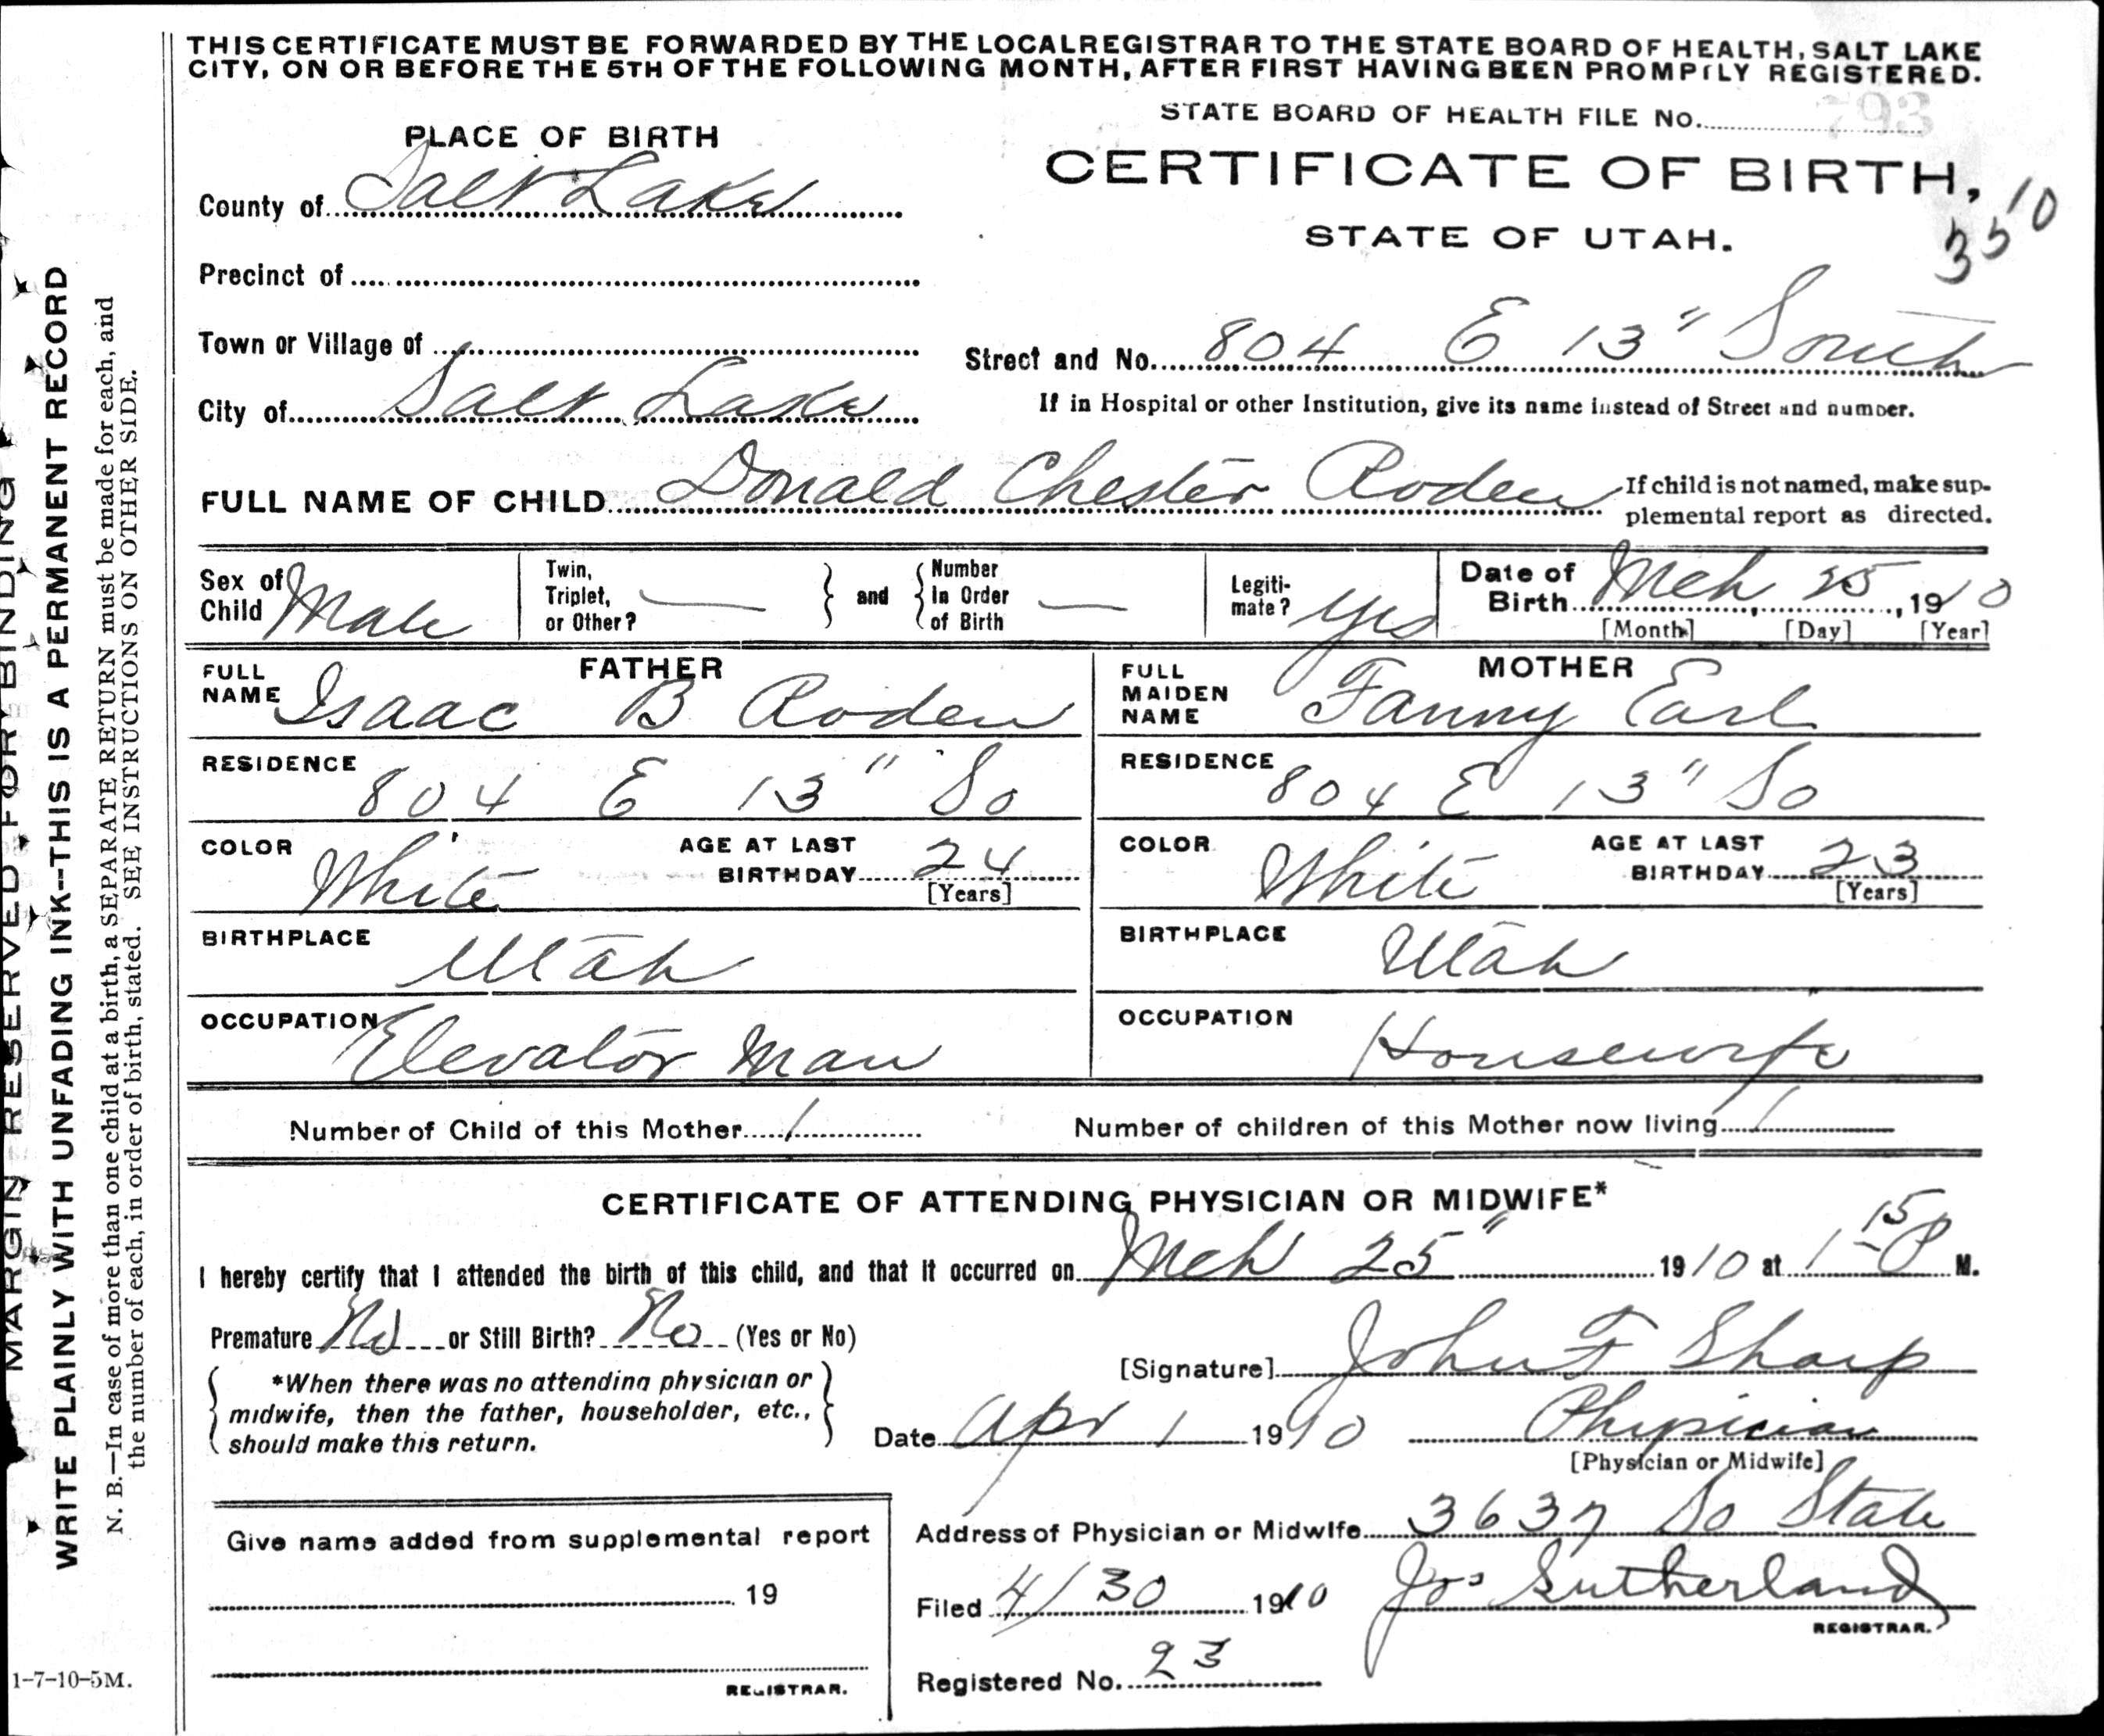 THIS CERTIFICATE MUST BE FORWARDED BY THE LOCAL REGISTRAR TO THE STATE BOARD OF HEALTH, SALT LAKE
CITY, ON OR BEFORE THE 5TH OF THE FOLLOWING MONTH, AFTER FIRST HAVING BEEN PROMPTLY REGISTERED.
STATE BOARD OF HEALTH FILE No. 793
PLACE OF BIRTH
CERTIFICATE OF BIRTH,
STATE OF UTAH.
35 10
County of Salt Lake
Precinct of
Town or Village of
Street and No. 804 E 13" South
City of Salt Lake
If in Hospital or other Institution, give its name instead of Street and number.
FULL NAME OF CHILD Donald Chester Roden
If child is not named, make sup-
plemental report as directed.
Sex of Child Male
Twin, Triplet, or Other? —
and
Number in Order of Birth —
Legiti-mate? Yes
Date of Birth Mch 25, 1910
[Month] [Day] [Year]
FATHER
FULL NAME Isaac B Roden
MOTHER
FULL MAIDEN NAME Fanny Earl
RESIDENCE 804 E 13" So
RESIDENCE 804 E 13" So
COLOR White AGE AT LAST BIRTHDAY 24 [Years]
COLOR White AGE AT LAST BIRTHDAY 23 [Years]
BIRTHPLACE Utah
BIRTHPLACE Utah
OCCUPATION Elevator Man
OCCUPATION Housewife
Number of Child of this Mother 1
Number of children of this Mother now living 1
CERTIFICATE OF ATTENDING PHYSICIAN OR MIDWIFE*
I hereby certify that I attended the birth of this child, and that it occurred on Mch 25" 1910 at 1 15 P M.
Premature No or Still Birth? No (Yes or No)
[Signature] John F Sharp
*When there was no attending physician or
midwife, then the father, householder, etc.,
should make this return.
Date Apr 1 1910
Physician
[Physician or Midwife]
Give name added from supplemental report
19
REGISTRAR.
Address of Physician or Midwife 3637 So State
Filed 4/30 1910 Jos Sutherland
REGISTRAR.
Registered No. 23
MARGIN RESERVED FOR BINDING
WRITE PLAINLY WITH UNFADING INK--THIS IS A PERMANENT RECORD
N. B.—In case of more than one child at a birth, a SEPARATE RETURN must be made for each, and
the number of each, in order of birth, stated. SEE INSTRUCTIONS ON OTHER SIDE.
1-7-10-5M.